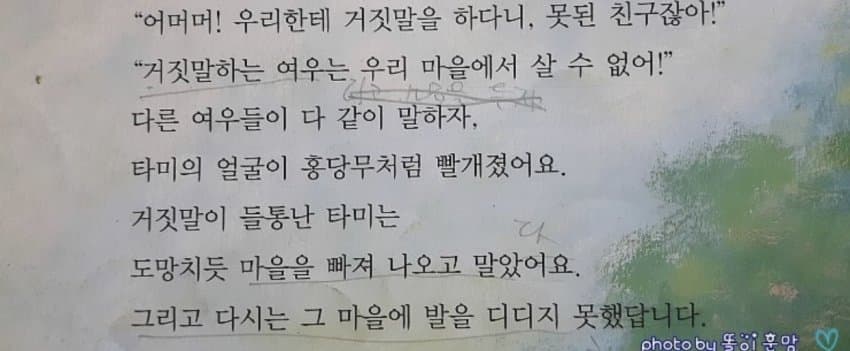 “어머머! 우리한테 거짓말을 하다니, 못된 친구잖아!”
“거짓말하는 여우는 우리 마을에서 살 수 없어!”
다른 여우들이 다 같이 말하자,
타미의 얼굴이 홍당무처럼 빨개졌어요.
거짓말이 들통난 타미는
다
도망치듯 마을을 빠져 나오고 말았어요.
그리고 다시는 그 마을에 발을 디디지 못했답니다.
photo by 똘이 훈맘